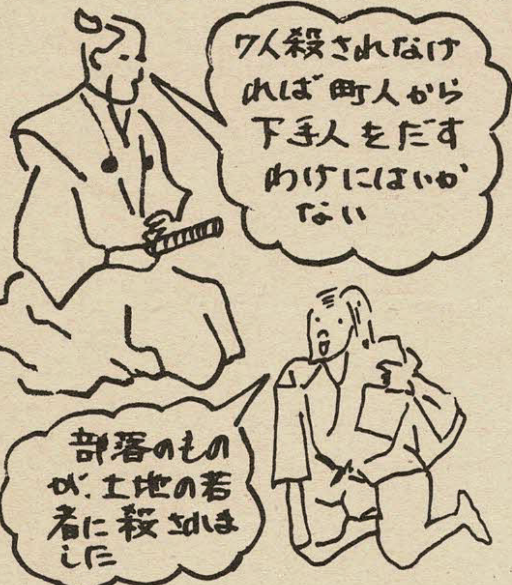 7人殺されなけ
れば町人から
下手人をだす
わけにはいか
ない
部落のもの
が、土地の若
者に殺されま
した